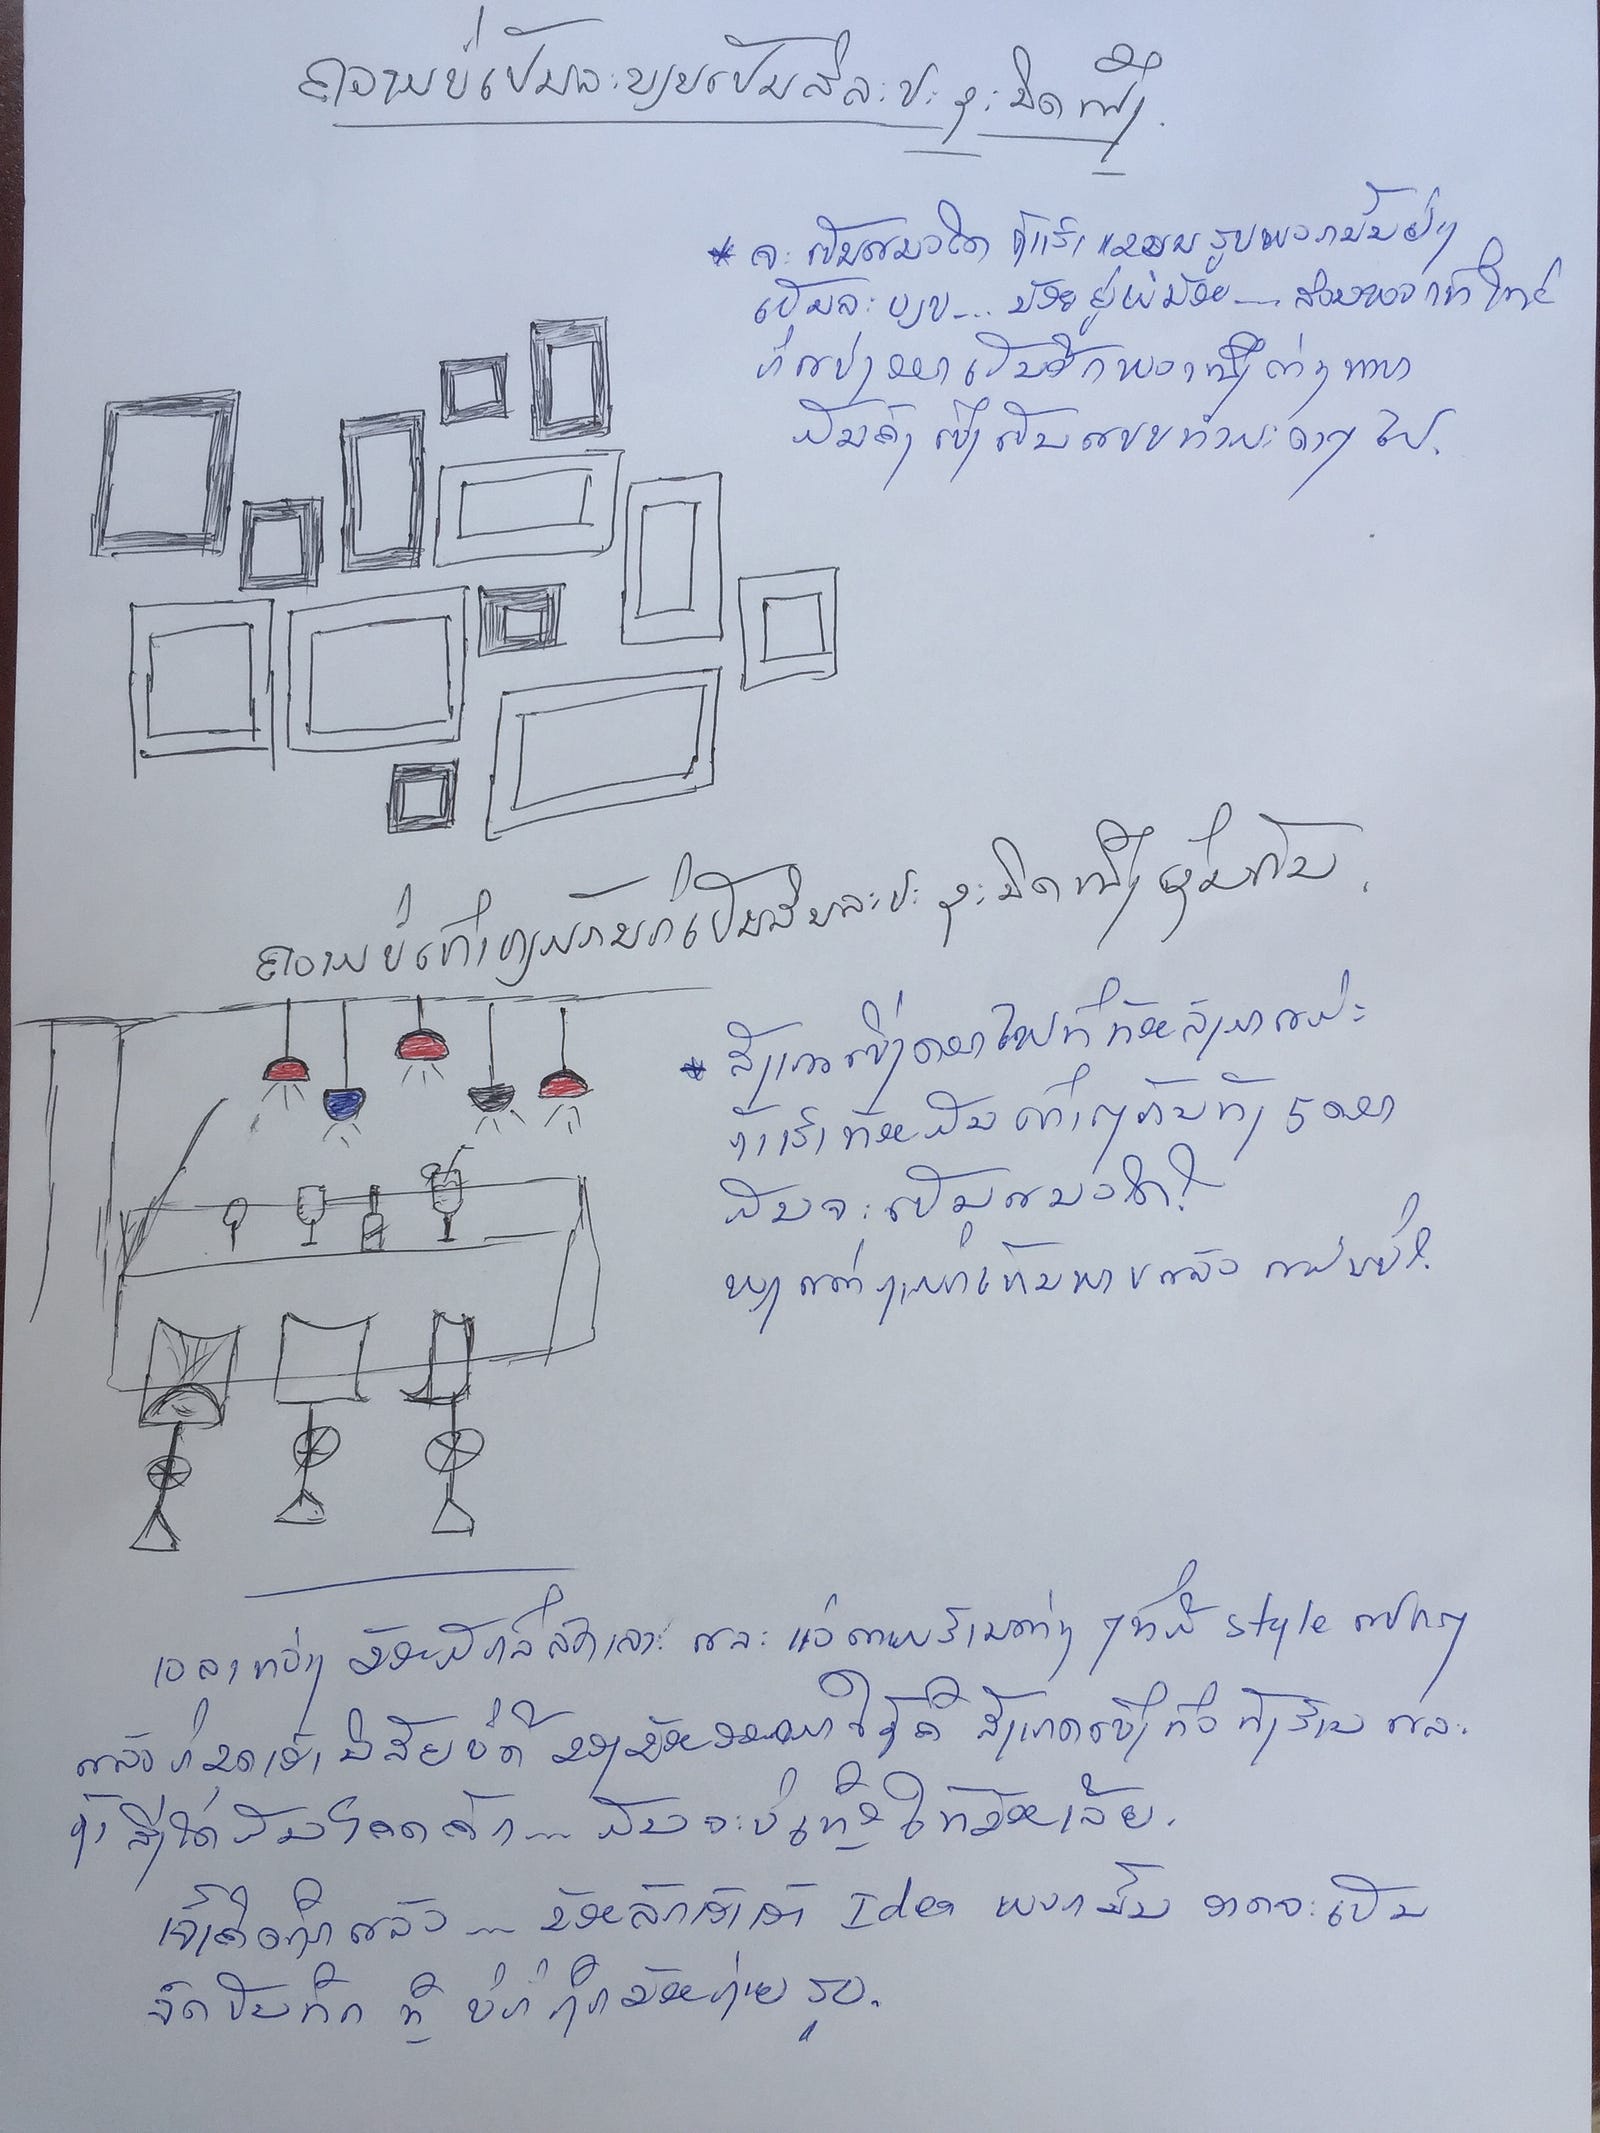 ຄວາມບໍ່ເປັນລະບຽບເປັນສິລະປະຊະນິດໜຶ່ງ.
* ຈະເປັນແນວໃດ ຖ້າເຮົາແຂວນຮູບພວກນັ້ນຢ່າງ
ເປັນລະບຽບ... ນ້ອຍຢູ່ແຕ່ນ້ອຍ... ສ່ວນພວກທີ່ໃຫຍ່
ກໍ່ແບ່ງອອກເປັນອີກພວກໜຶ່ງຕ່າງຫາກ
ມັນຄົງເບິ່ງເປັນແບບທຳມະດາໆໄປ.
ຄວາມບໍ່ເທົ່າທຽມກັນກໍ່ເປັນສິນລະປະຊະນິດໜຶ່ງເຊັ່ນກັນ.
* ສັງເກດເບິ່ງດອກໄຟທີ່ຫ້ອຍລົງມາແມະ
ຖ້າເຮົາຫ້ອຍມັນເທົ່າໆກັນທັງ 5 ດອກ
ມັນຈະເປັນແນວໃດ?
ພຽງແຕ່ງາມກໍ່ເທົ່ານັ້ນ ແລ້ວ ແມ່ນບໍ່?
ເວລາຫວ່າງ ຂ້ອຍມັກລໍ່ລັດເລາະ ແລະ ແວ່ຕາມຮ້ານຕ່າງໆທີ່ມີ style ແປກໆ
ແລ້ວກໍ່ຂຸດເອົານິໄສບໍ່ດີ ຂອງຂ້ອຍອອກມາໃຊ້ຄື ສັງເກດເບິ່ງທົ່ວທັງຮ້ານ ແລະ
ຖ້າສິ່ງໃດມັນໂດດຄັກ... ມັນຈະບໍ່ເຫຼືອໃຫ້ຂ້ອຍເລີຍ.
ເຈົ້າຄືດຖືກແລ້ວ... ຂ້ອຍລັກເອົາເອົາ Idea ພວກນັ້ນ ອາດຈະເປັນ
ຈົດບັນທຶກ ຫຼື ບໍ່ກໍ່ຖືກຂ້ອຍຖ່າຍຮູບ.